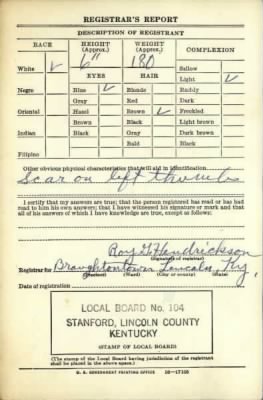 REGISTRAR'S REPORT
DESCRIPTION OF REGISTRANT
RACE HEIGHT (Approx.) WEIGHT (Approx.) COMPLEXION
White ✓ 6" 180 Sallow
EYES HAIR Light ✓
Negro Blue ✓ Blonde Ruddy
Gray Red Dark
Oriental Hazel Brown ✓ Freckled
Brown Black Light brown
Indian Black Gray Dark brown
Bald Black
Filipino
Other obvious physical characteristics that will aid in identification
Scar on left thumb
I certify that my answers are true; that the person registered has read or has had
read to him his own answers; that I have witnessed his signature or mark and that
all of his answers of which I have knowledge are true, except as follows:
Roy G Hendrickson
(Signature of registrar)
Registrar for Broughtontown Lincoln, Ky,
(Precinct) (Ward) (City or county) (State)
Date of registration
LOCAL BOARD No. 104
STANFORD, LINCOLN COUNTY
KENTUCKY
(STAMP OF LOCAL BOARD)
(The stamp of the Local Board having jurisdiction of the registrant
shall be placed in the above space.)
U. S. GOVERNMENT PRINTING OFFICE